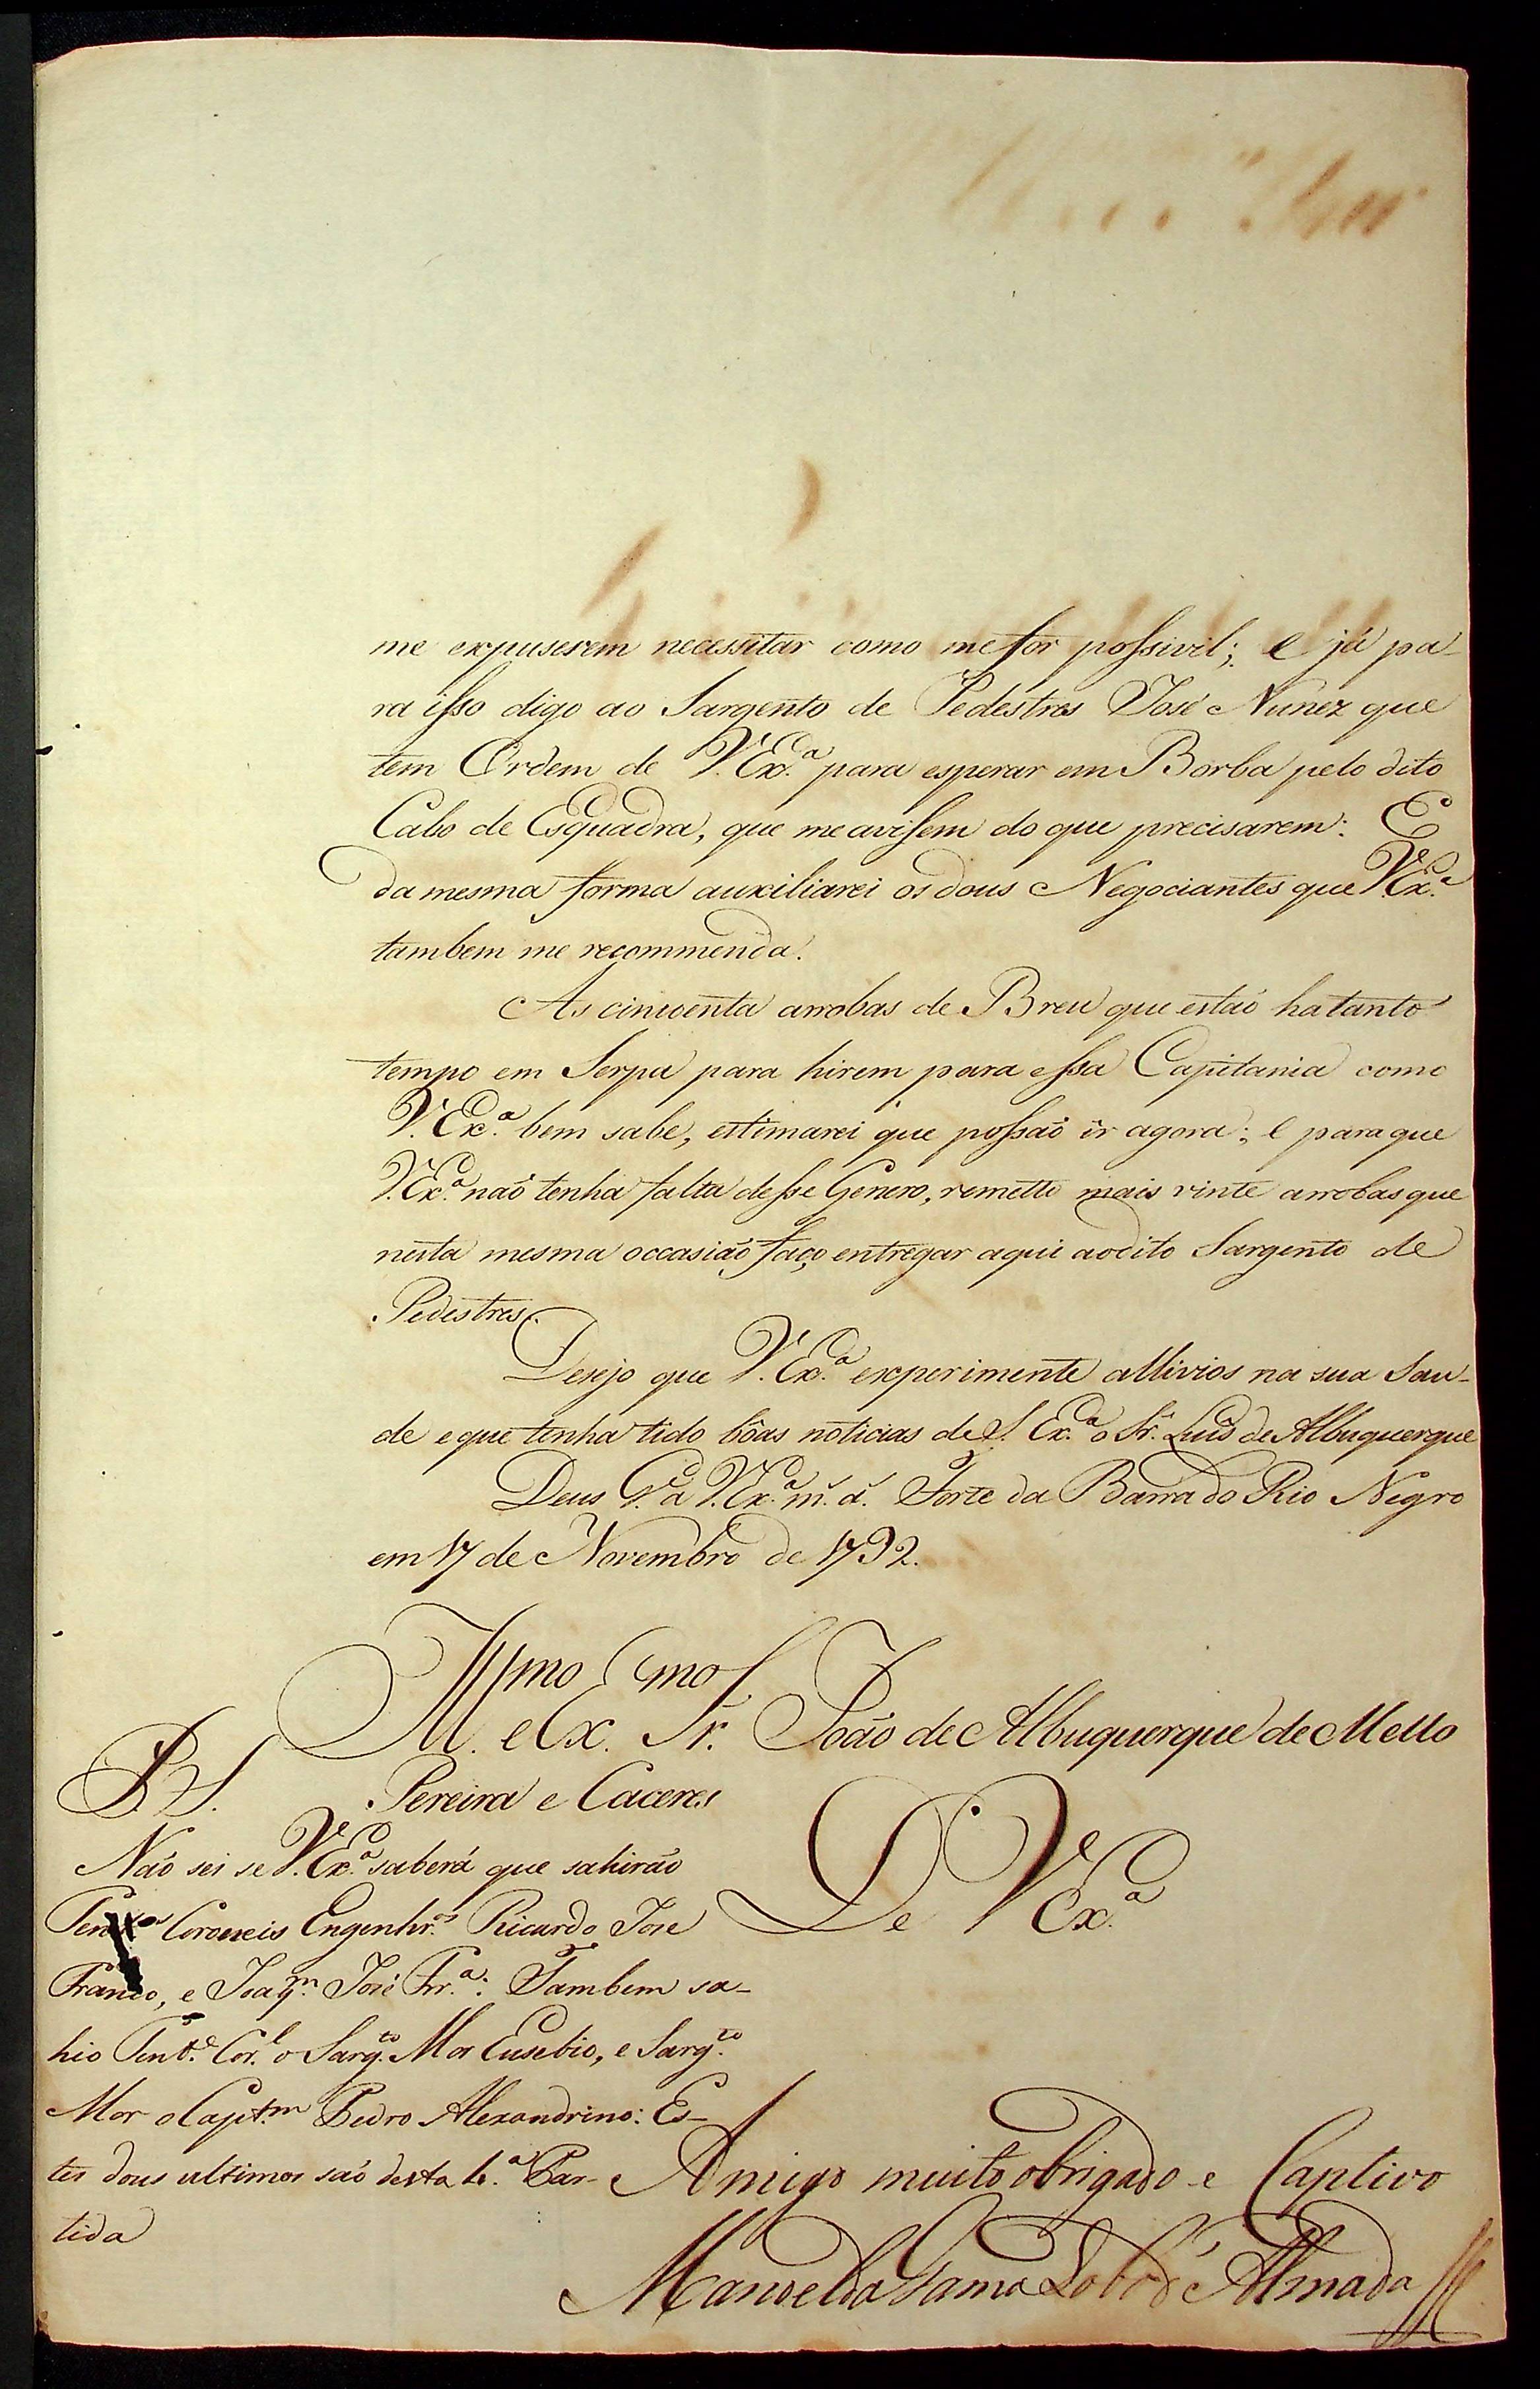 me expuserem necessitar como me for possivel; e já pa-
ra isso digo ao Sargento de Pedestres José Nunez que
tem Ordem de V. Ex.ª para esperar em Borba pelo dito
Cabo de Esquadra, que me avisem do que precisarem: E
da mesma forma auxiliarei os dous Negociantes que V. Ex.ª
tambem me recommenda.
As cincoenta arrobas de Breu que estão ha tanto
tempo em Serpa para hirem para essa Capitania como
V. Ex.ª bem sabe, estimarei que possão ir agora; e para que
V. Ex.ª não tenha falta desse Genero, remetto mais vinte arrobas que
nesta mesma occasião faço entregar aqui ao dito Sargento de
Pedestres.
Desejo que V. Ex.ª experimente allivios na sua Sau-
de e que tenha tido bôas noticias de S. Ex.ª o Sr. Luis de Albuquerque
Deus G.de a V. Ex.ª m.s a.s Forte da Barra do Rio Negro
em 17 de Novembro de 1792.
Ill.mo e Ex.mo Sr. João de Albuquerque de Mello
Pereira e Caceres
De V. Ex.ª
Amigo muito obrigado e Captivo
Manoel da Gama Lobo d'Almada
P. S.
Não sei se V. Ex.ª saberá que sahirão
Ten.es Coroneis Engenhr.os Ricardo Jose
Franco, e Joaq.m José Frr.ª: Tambem sa-
hio Tent.e Cor.l o Sarg.to Mor Eusebio, e Sarg.to
Mor o Capt.m Pedro Alexandrino: Es-
tes dous ultimos são desta 4.ª Par-
tida